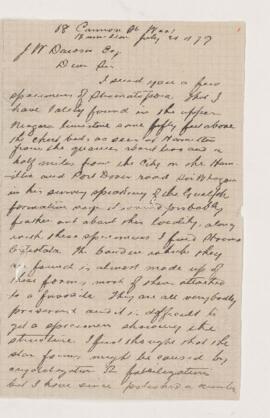 18 Cannon St West
Hamilton July 21 1877
J W Dawson Esq
Dear Sir
I send you a few
specimens of Stromatopora. that I
have lately found in the upper
Niagara limestone some fifty feet above
the chert beds as seen at Hamilton
from the quarries about two and a
half miles from the City on the Ham-
ilton and Port Dover road Sir W Logan
in his survey speaking of the Guelph
formation says it would probably
feather out about this locality. along
with these specimens I find
the boulder which they
is found is almost made up of
these forms, most of them attached
to a favosite. They are all very badly
preserved and it is difficult to
get a specimen showing the
structure. I first thought that the
star forms might be caused by
crystallization in fossilization
but I have since polished a number